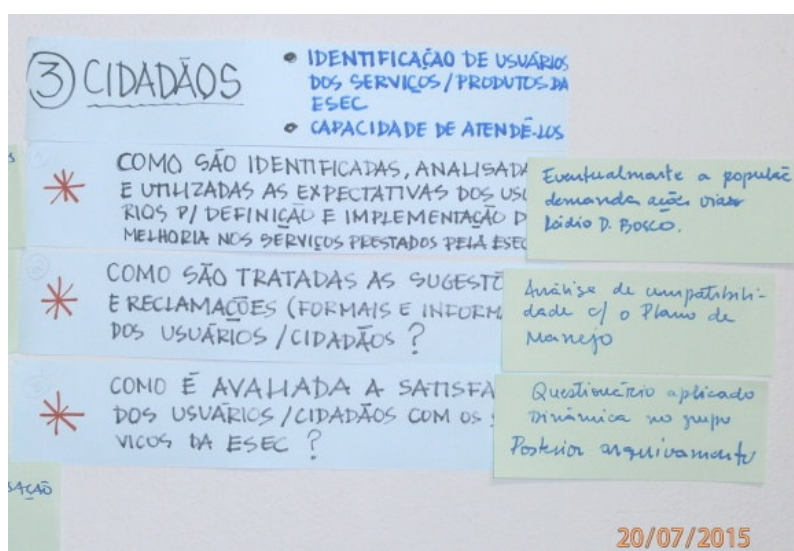 3 CIDADÃOS
• IDENTIFICAÇÃO DE USUÁRIOS
DOS SERVIÇOS/PRODUTOS DA
ESEC
• CAPACIDADE DE ATENDÊ-LOS
COMO SÃO IDENTIFICADAS, ANALISADA
E UTILIZADAS AS EXPECTATIVAS DOS USU
RIOS P/ DEFINIÇÃO E IMPLEMENTAÇÃO D
MELHORIA NOS SERVIÇOS PRESTADOS PELA ESEC
Eventualmente a populaç
demanda ações
D. Bosco.
COMO SÃO TRATADAS AS SUGESTÕ
E RECLAMAÇÕES (FORMAIS E INFORM
DOS USUÁRIOS / CIDADÃOS ?
Análise de compatibili-
dade c/ o Plano de
Manejo
COMO É AVALIADA A SATISFA
DOS USUÁRIOS / CIDADÃOS COM OS S
VICOS DA ESEC ?
Questionário aplicado
Dinâmica no grupo
Posterior arquivamento
SAÇÃO
20/07/2015